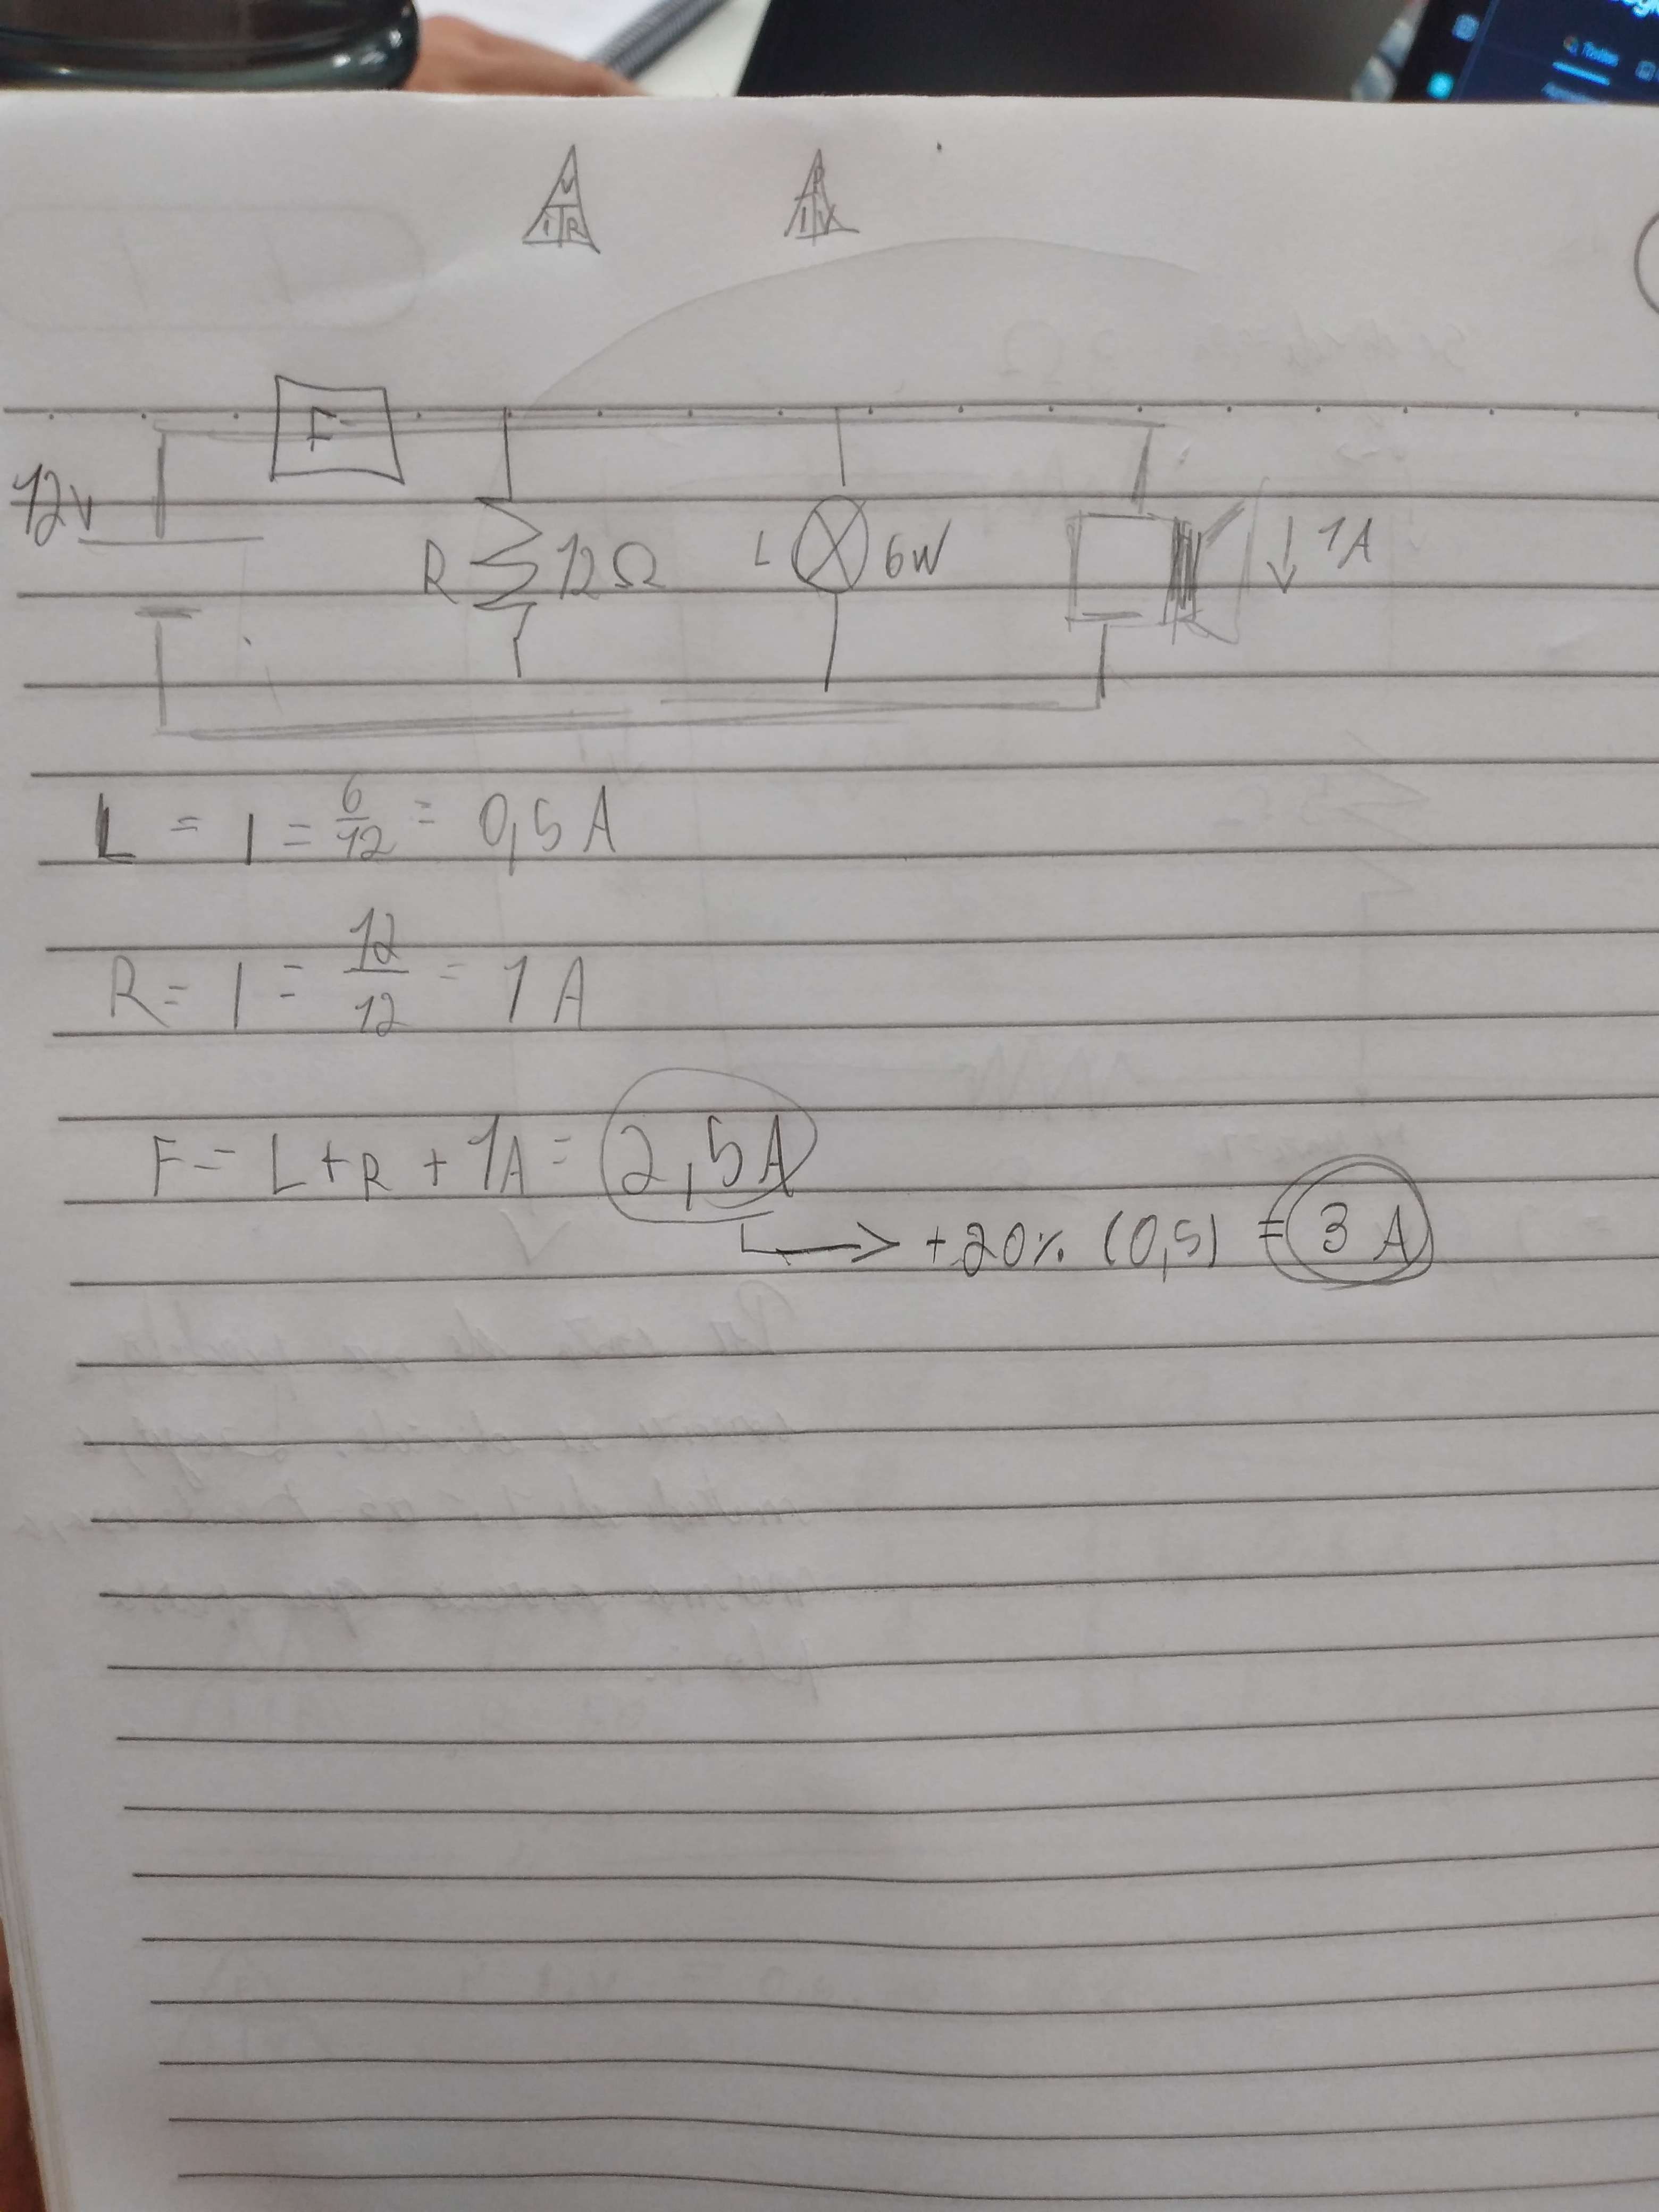 Todas
V
I R
P
I V
F
12v
R 12Ω
L 6W
↓ 1A
L = I = 6/12 = 0,5 A
R = I = 12/12 = 1 A
F = L + R + 1A = 2,5A
→ +20% (0,5) = 3 A